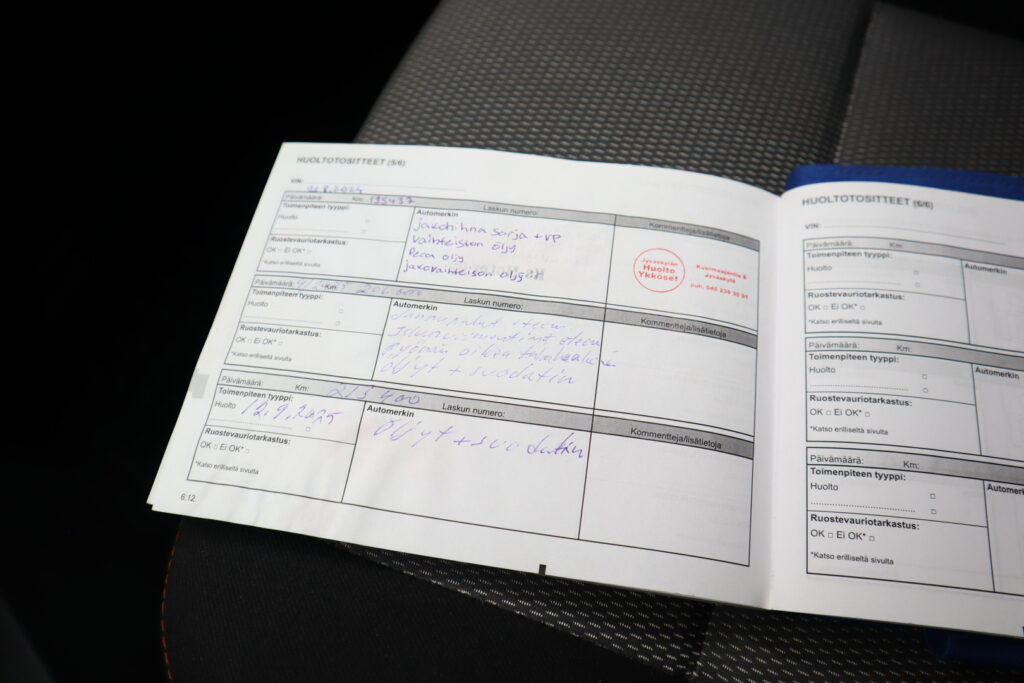 HUOLTOTOSITTEET (5/6)
VIN:
21.8.2024
Päivämäärä: Km: 195437 Laskun numero: Kommentteja/lisätietoja
Toimenpiteen tyyppi:
Huolto
Ruostevauriotarkastus:
OK □ Ei OK* □
*Katso erillistä sivulta
Automerkin
jakohihna sarja + VP
Vaihteiston öljy
Pera öljy
jakovaihteison öljyt
Jyväskylän
Huolto
Ykköset
Jyväskylä
Päivämäärä: Km: Laskun numero: Kommentteja/lisätietoja
Toimenpiteen tyyppi:
Huolto
Ruostevauriotarkastus:
OK □ Ei OK* □
*Katso erilliseltä sivulta
Automerkin
Jarrupalat eteen
oikea
öljyt + suodatin
Päivämäärä: Km: 215400 Laskun numero: Kommentteja/lisätietoja
Toimenpiteen tyyppi:
Huolto 12.9.2025
Ruostevauriotarkastus:
OK □ Ei OK* □
*Katso erilliseltä sivulta
Automerkin
Öljyt + suodatin
6.12
HUOLTOTOSITTEET (6/6)
VIN:
Päivämäärä: Km:
Toimenpiteen tyyppi:
Huolto
Ruostevauriotarkastus:
OK □ Ei OK* □
*Katso erilliseltä sivulta
Automerkin
Päivämäärä: Km:
Toimenpiteen tyyppi:
Huolto
Ruostevauriotarkastus:
OK □ Ei OK* □
*Katso erilliseltä sivulta
Automerkin
Päivämäärä: Km:
Toimenpiteen tyyppi:
Huolto
Ruostevauriotarkastus:
OK □ Ei OK* □
*Katso erilliseltä sivulta